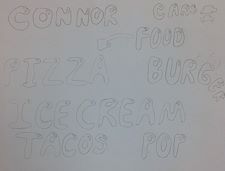 CONNOR
FOOD
PIZZA BURGER
ICE CREAM
TACOS POP